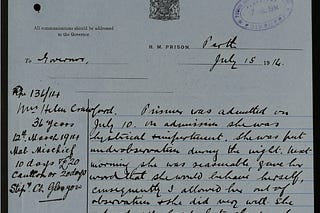 All communications should be addressed
to the Governor.
H. M. PRISON, Perth
July 15 1914.
To Governor,
136/14
Mrs Helen Crawford. Prisoner was admitted on
36 years July 10. on admission she was
12th March 1914 hysterical & impertinent. She was put
Mal. Mischief under observation during the night. Next
10 days morning she was reasonable gave her
Caution or 20 days word that she would behave herself,
Stip. Ct. Glasgow consequently I allowed her out of
observation & she did very well. She